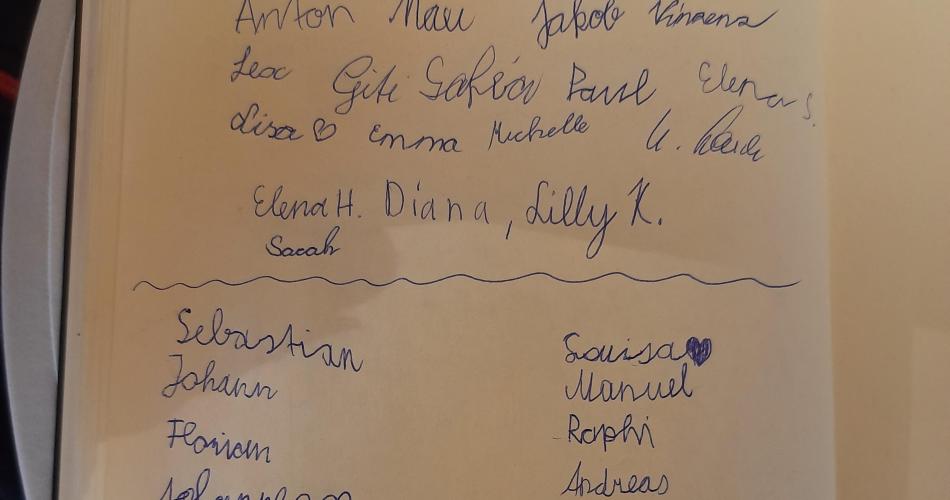 Anton Maxi Jakob Vinzenz
Leo Giti Paul Elena S.
Lisa♡ Emma Michelle
Elena H. Diana, Lilly K.
Sarah
Sebastian Louisa♥
Johann Manuel
Florian Raphi
Johannes Andreas